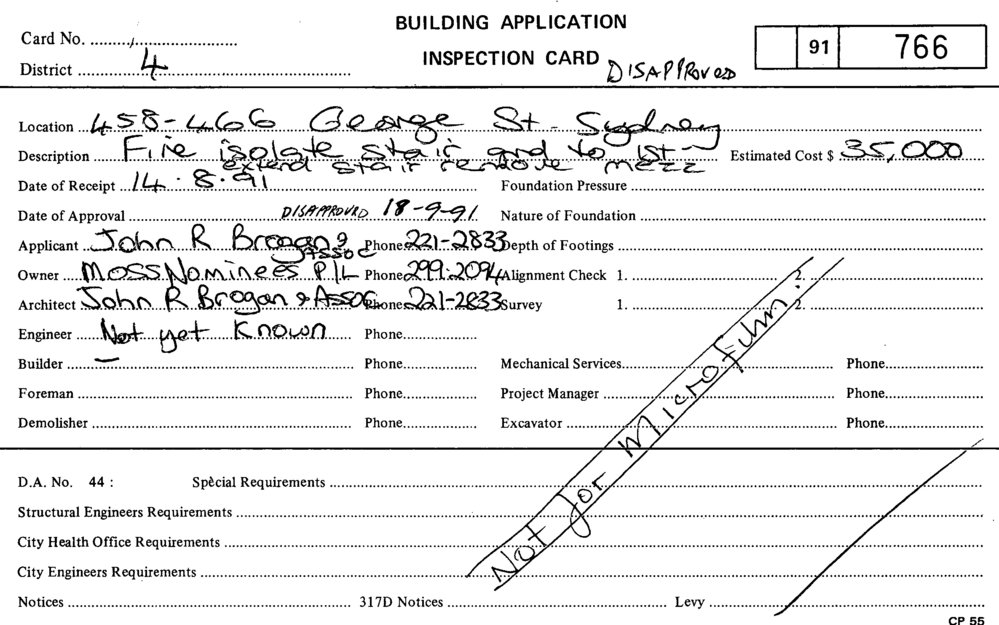 BUILDING APPLICATION
Card No.
INSPECTION CARD DISAPPROVED 91 766
District 4
Location 458-466 George St. Sydney
Description Fire isolate stair and to 1st Estimated Cost $ 35,000
extend stair remove mezz
Date of Receipt 14.8.91 Foundation Pressure
Date of Approval DISAPPROVED 18-9-91 Nature of Foundation
Applicant John R Brogan & Assoc Phone 221-2833 Depth of Footings
Owner Moss Nominees P/L Phone 299.2094 Alignment Check 1. 2.
Architect John R Brogan & Assoc Phone 221-2833 Survey 1. 2.
Engineer Not yet Known Phone
Builder Phone Mechanical Services Phone
Foreman Phone Project Manager Phone
Demolisher Phone Excavator Phone
Not for Microfilm.
D.A. No. 44 : Special Requirements
Structural Engineers Requirements
City Health Office Requirements
City Engineers Requirements
Notices 317D Notices Levy
CP 55